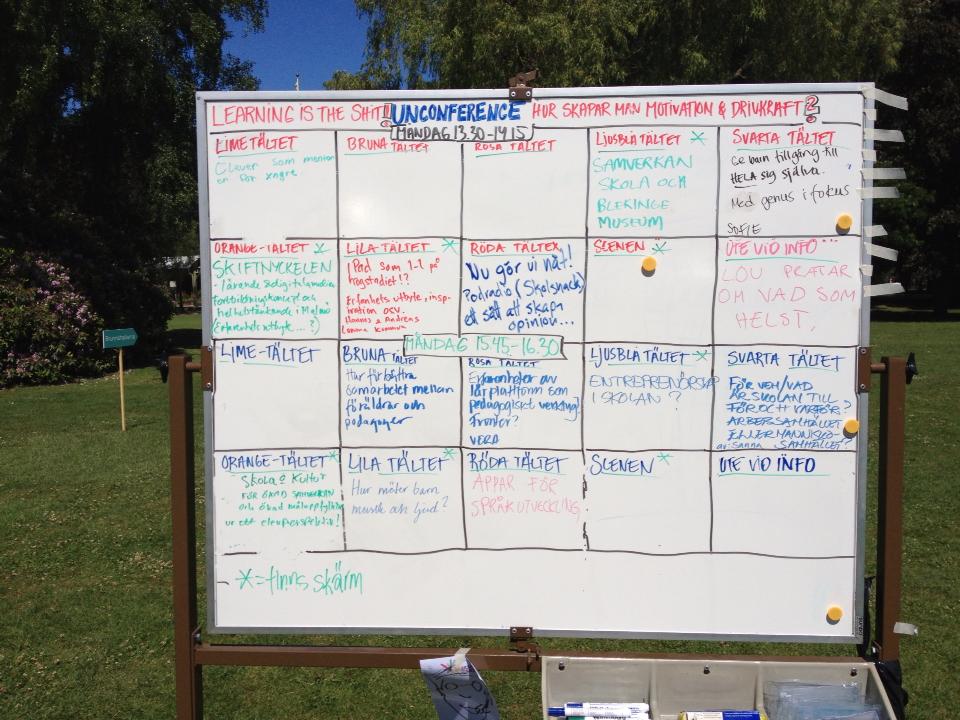 LEARNING IS THE SHIT! UNCONFERENCE HUR SKAPAR MAN MOTIVATION & DRIVKRAFT?
MÅNDAG 13.30-14.15
LIMETÄLTET
Elever som mentorer
för yngre
BRUNA TÄLTET
ROSA TÄLTET
LJUSBLÅ TÄLTET *
SAMVERKAN
SKOLA OCH
BLEKINGE
MUSEUM
SVARTA TÄLTET
Ge barn tillgång till
HELA sig själva.
Med genus i fokus
SOFIE
ORANGE-TÄLTET *
SKIFTNYCKELN
- lärande
fortbildningskoncept och
helhetstänkande i Malmö
Erfarenhetsutbyte....?)
LILA TÄLTET *
iPad som 1-1 på
högstadiet!?
Erfarhets utbyte, insp-
iration osv.
Hannes & Andreas
Lomma Kommun
RÖDA TÄLTET
Nu gör vi nåt!
Podradio (Skolsnack)
ett sätt att skapa
opinion...
SCENEN *
UTE VID INFO
LOU PRATAR
OM VAD SOM
HELST.
MÅNDAG 15.45-16.30
LIME-TÄLTET
BRUNA TÄLTET
Hur förbättra
samarbetet mellan
föräldrar och
pedagoger
ROSA TÄLTET
Erfarenheter av
lärplattform som
pedagogiskt verktyg!
Fronter?
VERA
LJUSBLÅ TÄLTET *
ENTREPRENÖRSKAP
I SKOLAN?
SVARTA TÄLTET
FÖR VEM/VAD
ÄR SKOLAN TILL
FÖR OCH VARFÖR?
ARBETSAMHÄLLET
ELLER MÄNNISKO-
SAMHÄLLET?
ORANGE-TÄLTET *
Skola & Kultur
FÖR ÖKAD SAMVERKAN
och ökad måluppfyllelse
ur ett elevperspektiv!
LILA TÄLTET *
Hur möter barn
musik och ljud?
RÖDA TÄLTET
APPAR FÖR
SPRÅKUTVECKLING
SCENEN *
UTE VID INFO
* = finns skärm